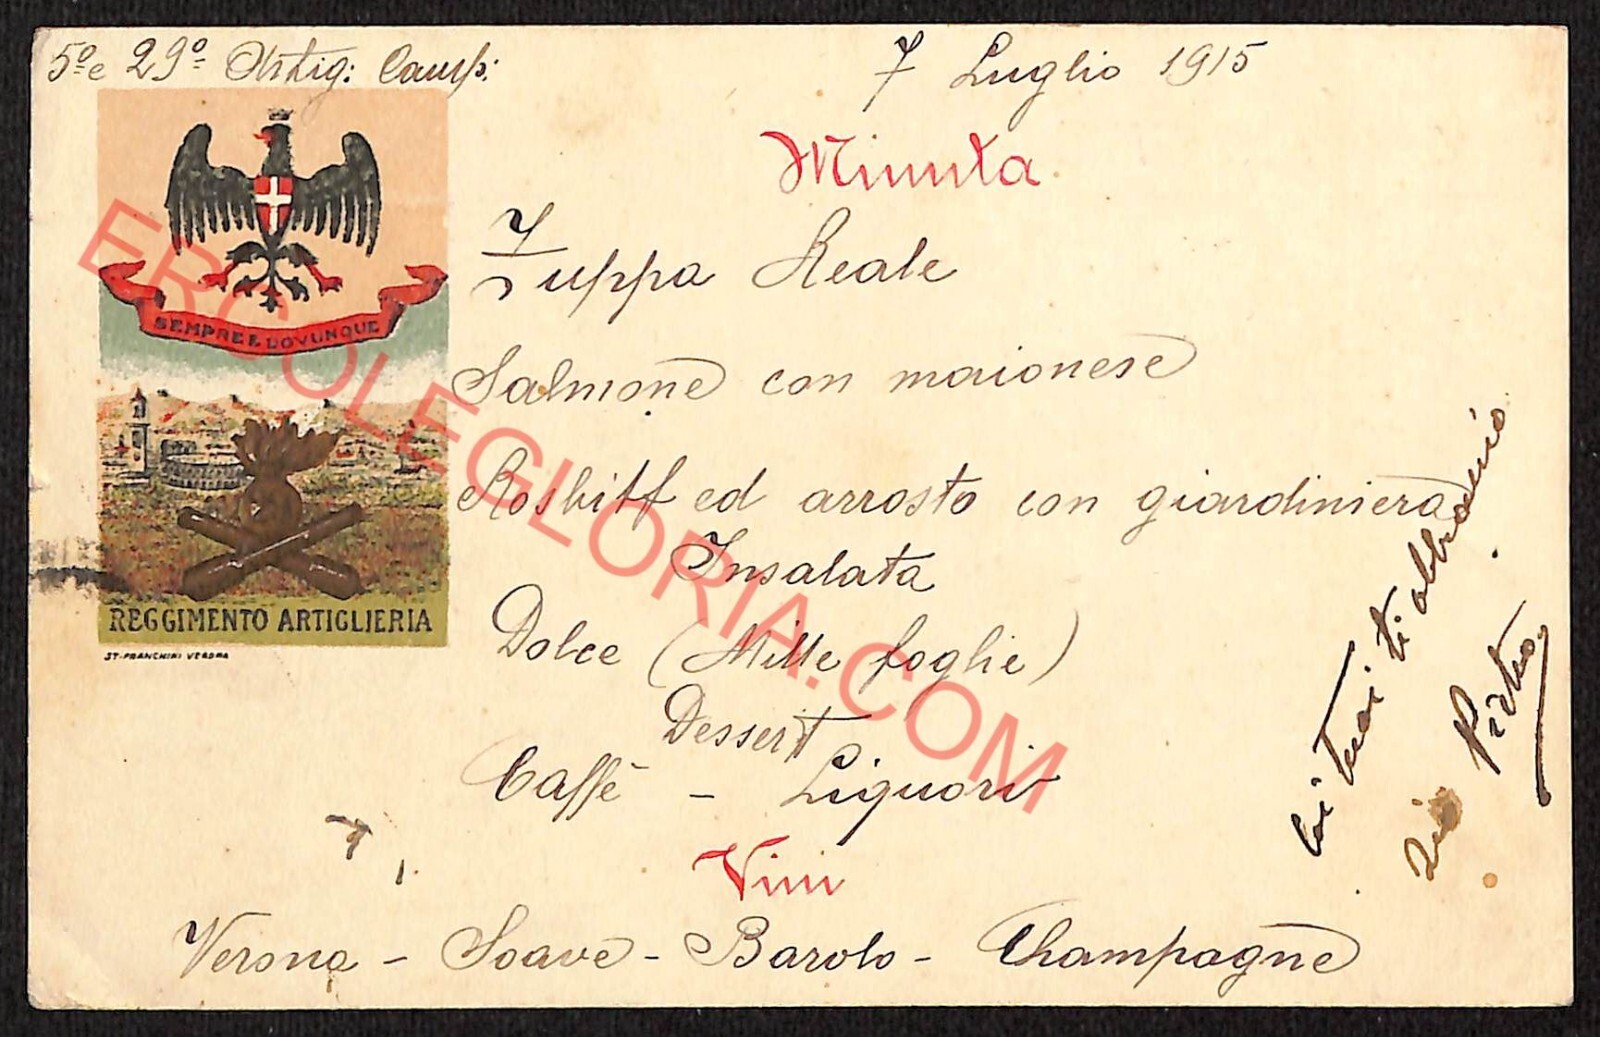 5º e 29º Artig: Camp:
7 Luglio 1915
Minuta
Zuppa Reale
Salmone con maionese
Rosbiff ed arrosto con giardiniera
Insalata
Dolce (Mille foglie)
Dessert
Caffè - Liquori
Vini
Verona - Soave - Barolo - Champagne
SEMPRE E DOVUNQUE
REGGIMENTO ARTIGLIERIA
ST. FRANCHINI VERONA
ti abbraccio
zio Pietro
ERCOLEGLORIA.COM